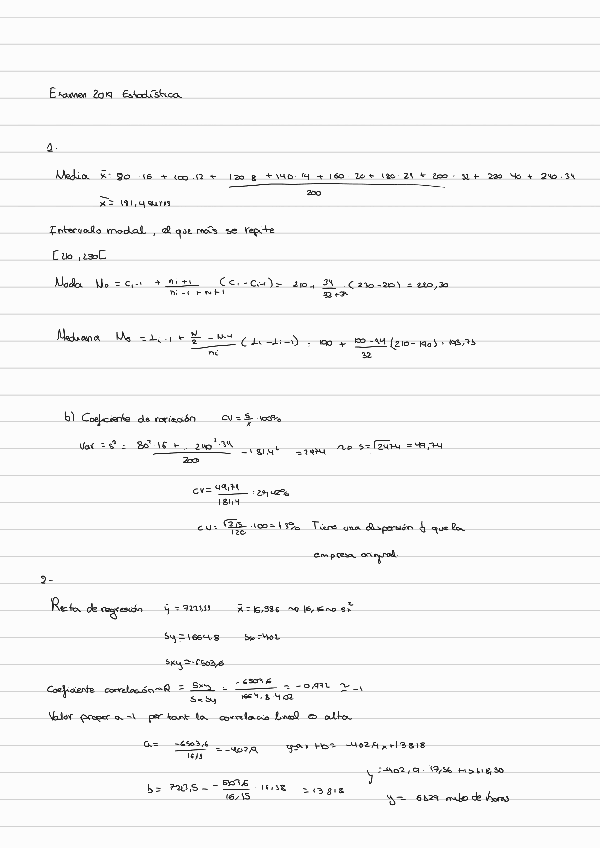 Examen 2019 Estadística
1.
Media x̄ = 80 · 16 + 100 · 12 + 120 · 8 + 140 · 14 + 160 · 20 + 180 · 24 + 200 · 32 + 220 · 40 + 240 · 34
200
x̄ = 181,4 euros
Intervalo modal, el que más se repite
[210, 230[
Moda Mo = Ci-1 + ni+1 / ni-1 + ni+1 (Ci - Ci-1) = 210 + 34 / 32+34 · (230-210) = 220,30
Mediana Me = Li-1 + N/2 - Ni-1 / ni (Li - Li-1) = 190 + 100-94 / 32 (210-190) = 193,75
b) Coeficiente de variación CV = S/x̄ · 100%
Var = s² = 80² · 16 + .. 240² · 34 / 200 - 181,4² = 2474 → s = √2474 = 49,74
CV = 49,74 / 181,4 = 27,42%
CV = / 120 · 100 = 13% Tiene una dispersión que la
empresa original.
2-
Recta de regresión ȳ = x̄ = 16,386 → 16,15 → Sx²
Sy = 1664,8 Sx = 4,02
Sxy = -6503,6
Coeficiente correlación → R = Sxy / SxSy = -6503,6 / 1664,8 · 4,02 = -0,972 ≃ -1
Valor proper a -1 per tant la correlació lineal és alta
a = -6503,6 / 16,15 = -402,9 y = ax + b = -402,9x + 13818
y = -402,9 · 17,56 +
b = 7223,5 - -6503,6 / 16,15 · 16,38 = 13818
y = 6829 de